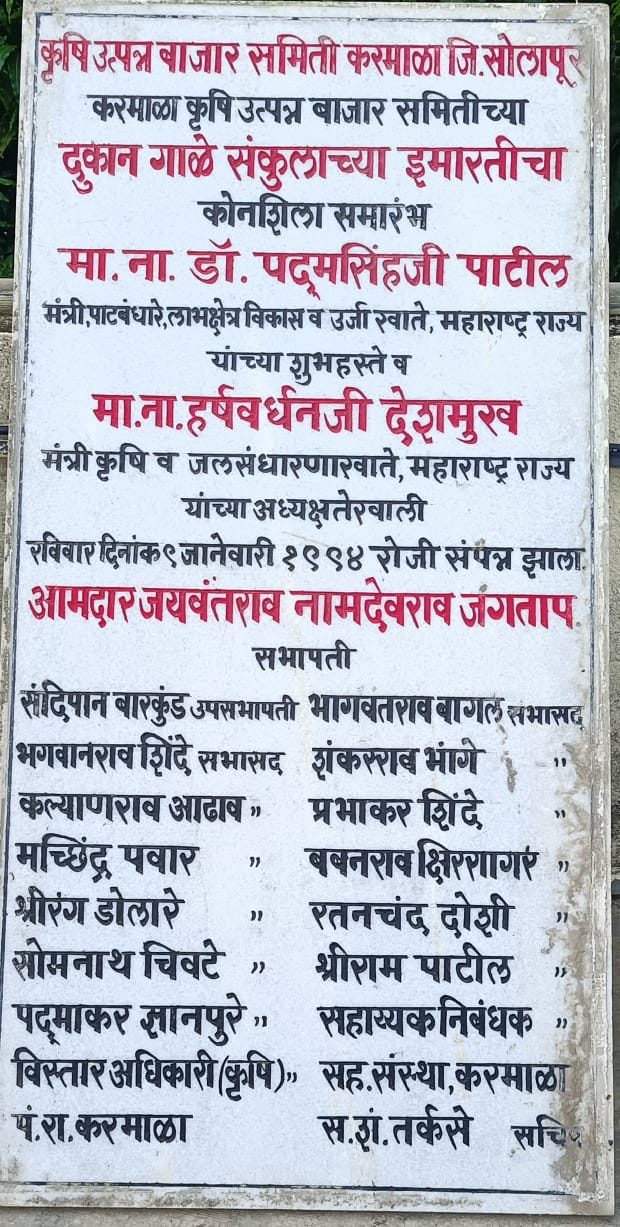 कृषि उत्पन्न बाजार समिती करमाळा जि.सोलापूर
करमाळा कृषि उत्पन्न बाजार समितीच्या
दुकान गाळे संकुलाच्या इमारतीचा
कोनशिला समारंभ
मा. ना. डॉ. पद्मसिंहजी पाटील
मंत्री,पाटबंधारे,लाभक्षेत्र विकास व उर्जा खाते, महाराष्ट्र राज्य
यांच्या शुभहस्ते व
मा.ना.हर्षवर्धनजी देशमुख
मंत्री कृषि व जलसंधारणाखाते, महाराष्ट्र राज्य
यांच्या अध्यक्षतेखाली
रविवार दिनांक ९ जानेवारी १९९४ रोजी संपन्न झाला.
आमदार जयवंतराव नामदेवराव जगताप
सभापती
संदिपान बारकुंड उपसभापती भागवतराव बागल सभासद
भगवानराव शिंदे सभासद शंकरराव भांगे "
कल्याणराव आढाव " प्रभाकर शिंदे "
मच्छिंद्र पवार " बबनराव क्षिरसागर "
श्रीरंग डोलारे " रतनचंद दोशी "
सोमनाथ चिवटे " श्रीराम पाटील "
पद्माकर ज्ञानपुरे " सहाय्यक निबंधक "
विस्तार अधिकारी (कृषि) " सह.संस्था, करमाळा
पं.रा.करमाळा स.शं.तर्कसे सचिव